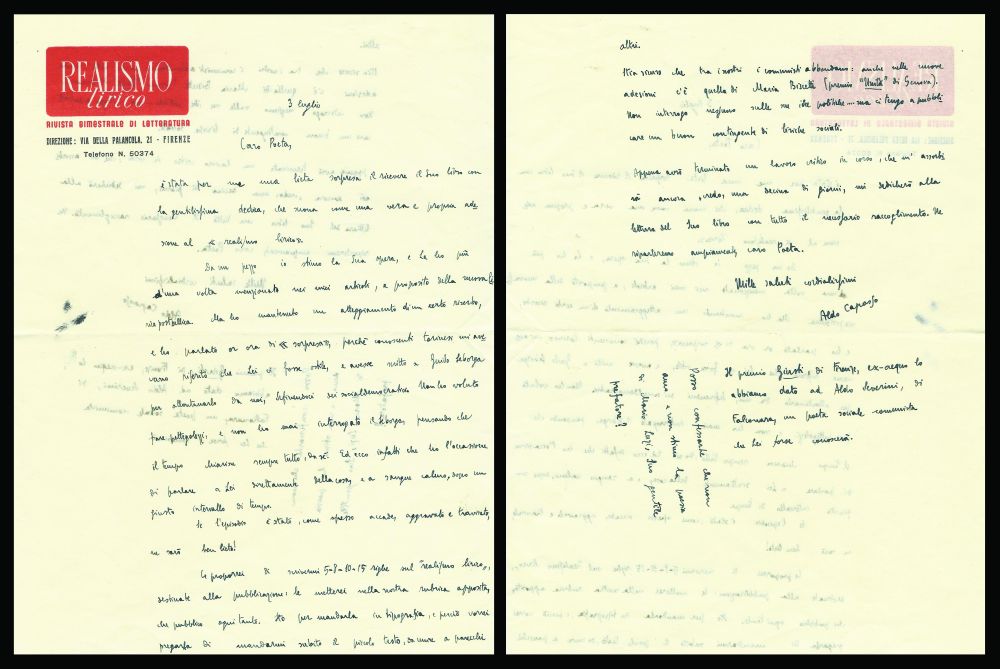 REALISMO
lirico
RIVISTA BIMESTRALE DI LETTERATURA
DIREZIONE: VIA DELLA PALANCOLA, 21 - FIRENZE
Telefono N. 50374
3 luglio
Caro Poeta,
è stata per me una lieta sorpresa il ricevere il Suo libro con
la gentilissima dedica, che suona come una vera e propria ade
sione al « realismo lirico».
Da un pezzo io stimo la Sua opera, e La ho più
d'una volta menzionato nei miei articoli, a proposito della
Ma ho mantenuto un atteggiamento di un certo riserbo,
e ho parlato or ora di « sorpresa», perché conoscenti torinesi mi ave
vano riferito che Lei ci fosse ostile, e avesse scritto a Guido Seborga
per allontanarlo da noi, definendoci dei socialdemocratici. Non ho voluto
fare pettegolezzi, e non ho mai interrogato il Seborga, pensando che
il tempo chiarisce sempre tutto, da sé. Ed ecco infatti che ho l'occasione
di parlare a Lei direttamente della cosa, e a sangue calmo, dopo un
giusto intervallo di tempo.
Se l'episodio è stato, come spesso accade, aggravato e travisato,
ne sarò ben lieto!
Le proporrei di scrivermi 5-8-10-15 righe sul "realismo lirico",
destinate alla pubblicazione: le metterei nella nostra rubrica apposita,
che pubblico ogni tanto. Sto per mandarla in tipografia, e perciò vorrei
pregarla di mandarmi subito il piccolo testo, da unire a parecchi
altri.
Sia sicuro che tra i nostri i comunisti abbondano: anche nelle nuove
adesioni c'è quella di Maria (premio "Unità" di Genova).
Non interrogo nessuno sulle sue idee politiche... ma ci tengo a pubbli
care un buon contingente di liriche sociali.
Appena avrò terminato un lavoro critico in corso, che m'assorbi
rà ancora, credo, una decina di giorni, mi dedicherò alla
lettura del Suo libro con tutto il necessario raccoglimento. Ne
riparleremo ampiamente, caro Poeta.
Mille saluti cordialissimi
Aldo Capasso
Il premio Giusti, di Firenze, ex-aequo lo
abbiamo dato ad Aldo Severini, di
Falconara, un poeta sociale comunista
che Lei forse conoscerà.
Posso confessarLe che non
amo e non stimo la poesia
di Mario Luzi, Suo gentile
prefatore?